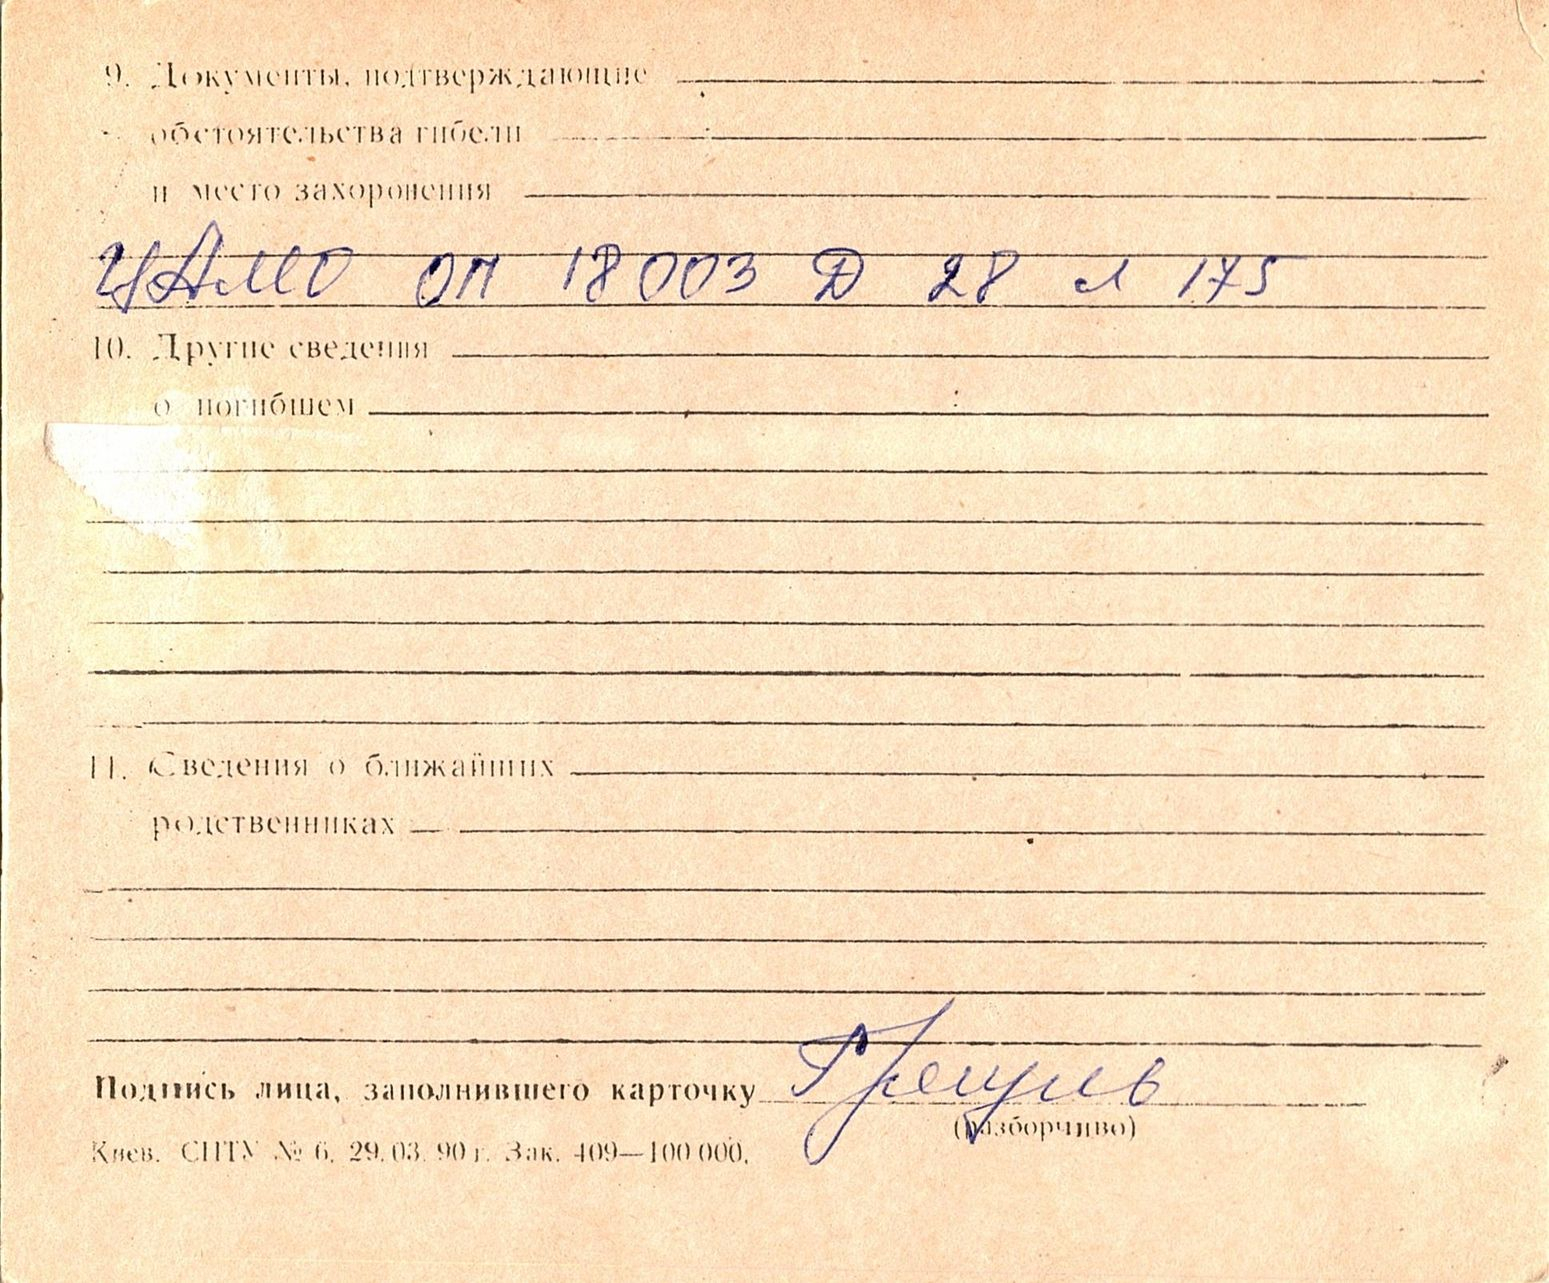 9. Документы, подтверждающие
обстоятельства гибели
и место захоронения
ЦАМО оп 18003 Д 28 л 175
10. Другие сведения
о погибшем
11. Сведения о ближайших
родственниках
Подпись лица, заполнившего карточку
(разборчиво)
Киев. СПТУ № 6. 29.03.90 г. Зак. 409—100 000.